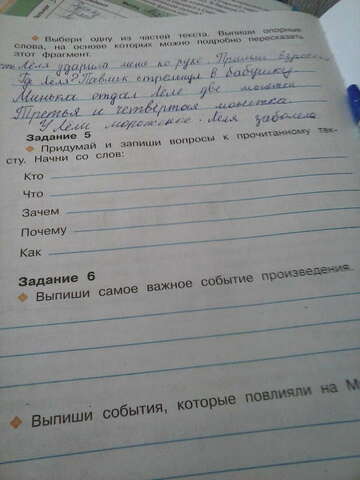 Выбери одну из частей текста. Выпиши опорные
слова, на основе которых можно подробно пересказать
этот фрагмент.
Лёля ударила меня по руке
Где Лёля? Павлик стрельнул в бабушку
Минька отдал Лёле две монетки
Третья и четвертая монетка
У Лёли мороженое. Лёля заболела
Задание 5
Придумай и запиши вопросы к прочитанному тек-
сту. Начни со слов:
Кто
Что
Зачем
Почему
Как
Задание 6
Выпиши самое важное событие произведения.
Выпиши события, которые повлияли на М